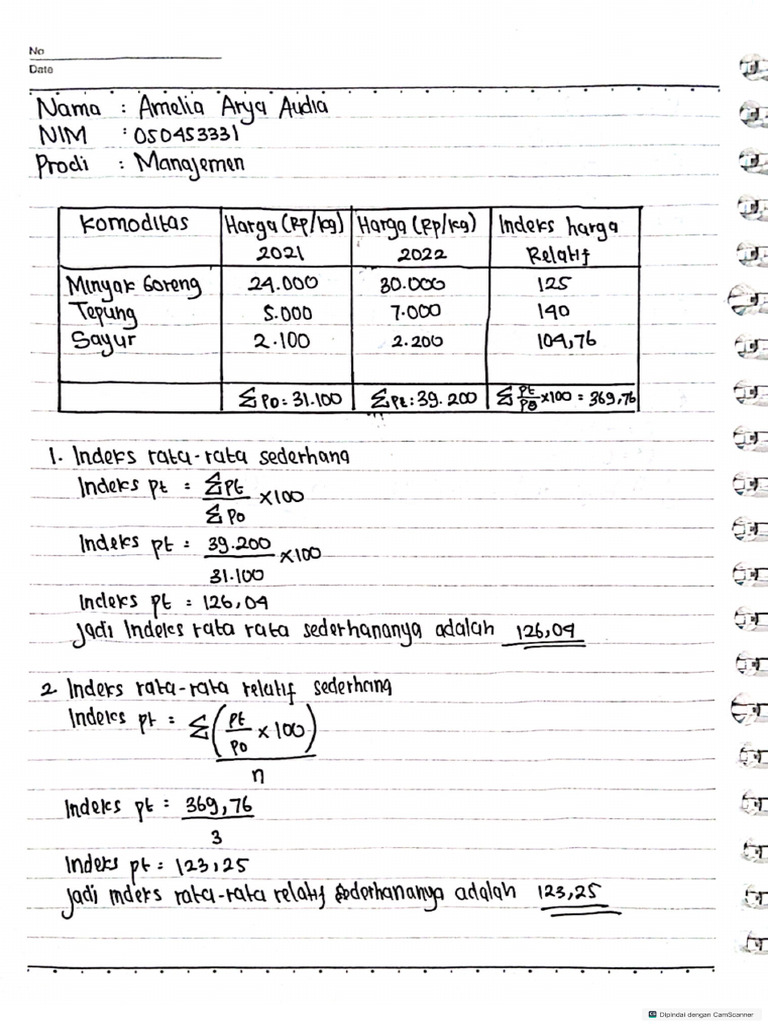 No
Date
Nama : Amelia Arya Audia
NIM : 050453331
Prodi : Manajemen
Komoditas | Harga (Rp/kg) 2021 | Harga (Rp/kg) 2022 | Indeks harga Relatif
Minyak Goreng | 24.000 | 30.000 | 125
Tepung | 5.000 | 7.000 | 140
Sayur | 2.100 | 2.200 | 104,76
Σ Po : 31.100 | Σ Pt : 39.200 | Σ Pt/Po x100 = 369,76
1. Indeks rata-rata sederhana
Indeks pt = Σ Pt / Σ Po x100
Indeks pt = 39.200 / 31.100 x100
Indeks pt = 126,04
Jadi Indeks rata rata sederhananya adalah 126,04
2. Indeks rata-rata relatif sederhana
Indeks pt = Σ (Pt/Po x 100) / n
Indeks pt = 369,76 / 3
Indeks pt = 123,25
Jadi indeks rata-rata relatif sederhananya adalah 123,25
CS Dipindai dengan CamScanner